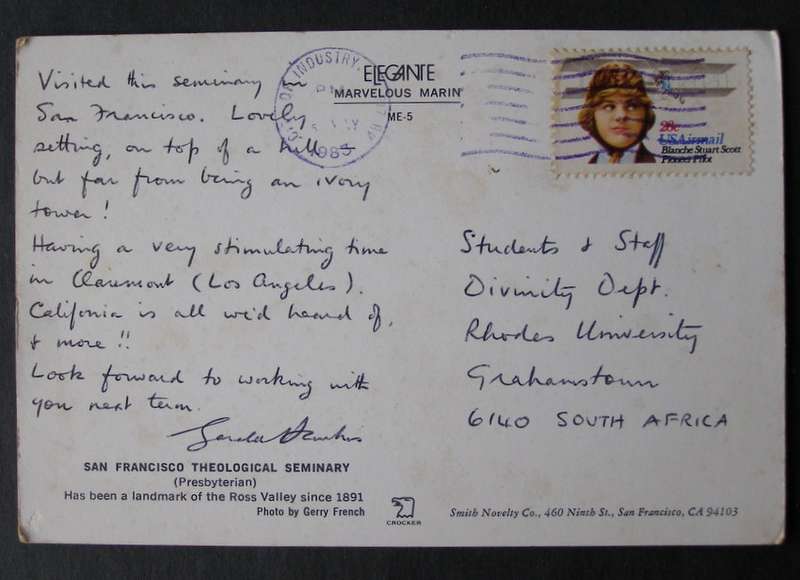 Visited this seminary in
San Francisco. Lovely
setting, on top of a hill –
but far from being an ivory
tower!
Having a very stimulating time
in Claremont (Los Angeles).
California is all we'd heard of,
& more!!
Look forward to working with
you next term.
SAN FRANCISCO THEOLOGICAL SEMINARY
(Presbyterian)
Has been a landmark of the Ross Valley since 1891
Photo by Gerry French
INDUSTRY,
PM
1983
ELEGANTE
MARVELOUS MARIN
ME-5
28c
USAirmail
Blanche Stuart Scott
Pioneer Pilot
Students & Staff
Divinity Dept.
Rhodes University
Grahamstown
6140 SOUTH AFRICA
CROCKER
Smith Novelty Co., 460 Ninth St., San Francisco, CA 94103